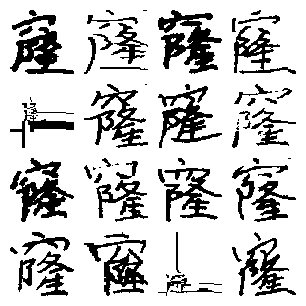 窿窿窿窿
窿窿窿
窿窿窿窿
窿窿窿